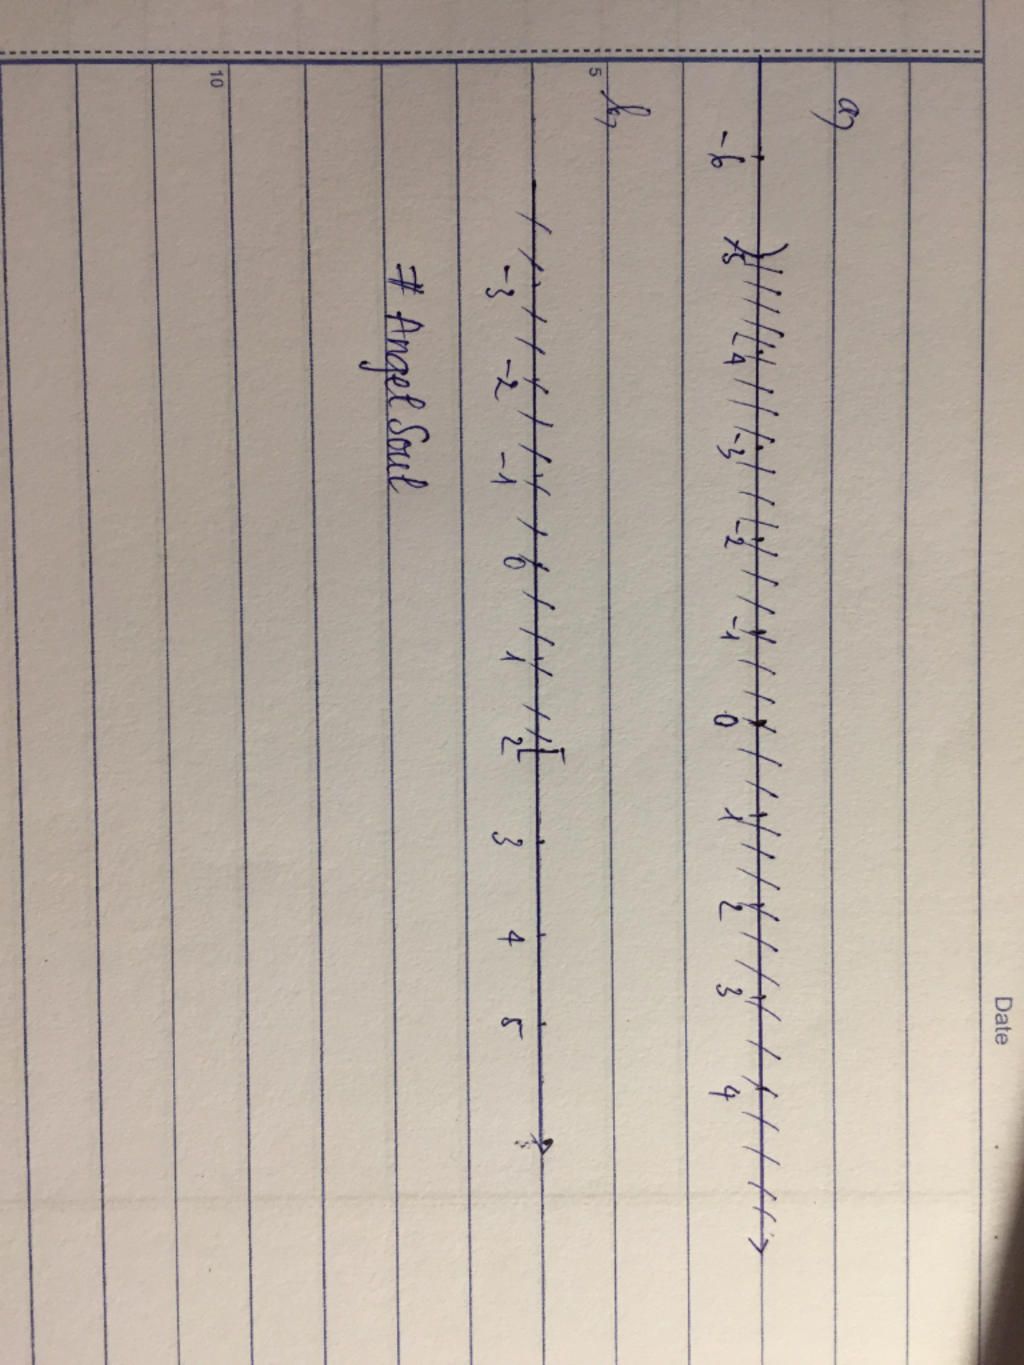 Date
a)
-6 -5 -4 -3 -2 -1 0 1 2 3 4
5
b)
-3 -2 -1 0 1 2 3 4 5
# Angel Soul
10